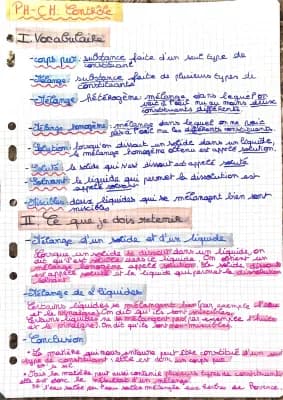 PH-CH. Contrôle
I Vocabulaire
-corps pur: substance faite d'un seul type de
constituant
-Mélange: substance faite de plusieurs types de
constituants
-Mélange hétérogène: mélange dans lequel on
voit à l'oeil nu au moins deux
constituants différents
-Mélange homogène: mélange dans lequel on ne voit
pas à l'oeil nu les différents constituants.
-Solution: lorsqu'on dissout un solide dans un liquide,
le mélange homogène obtenu est appelé solution.
-Soluté: le solide qui s'est dissout est appelé soluté
-Solvant: le liquide qui permet la dissolution est
appelé solvant
-Miscibles: deux liquides qui se mélangent bien sont
miscibles
II Ce que je dois retenir
-Mélange d'un solide et d'un liquide
Lorsque un solide se dissout dans un liquide, on
dit qu'il est soluble dans ce liquide. On obtient un
mélange homogène appelé solution. Le solide dissout
est appelé soluté et le liquide qui permet la dissolution
solvant
-Mélange de 2 liquides
Certains liquides se mélangent bien (par exemple l'eau
et le vinaigre). On dit qu'ils sont miscibles.
Certains liquides ne se mélangent pas (par exemple l'huile
et le vinaigre). On dit qu'ils sont non-miscibles.
-Conclusion
• La matière qui nous entoure peut être constitué d'un seul
type de constituant: elle est donc un corps pur
• Mais la matière peut aussi contenir plusieurs types de constituants
elle est donc le résultat d'un mélange
herbes de Provence.